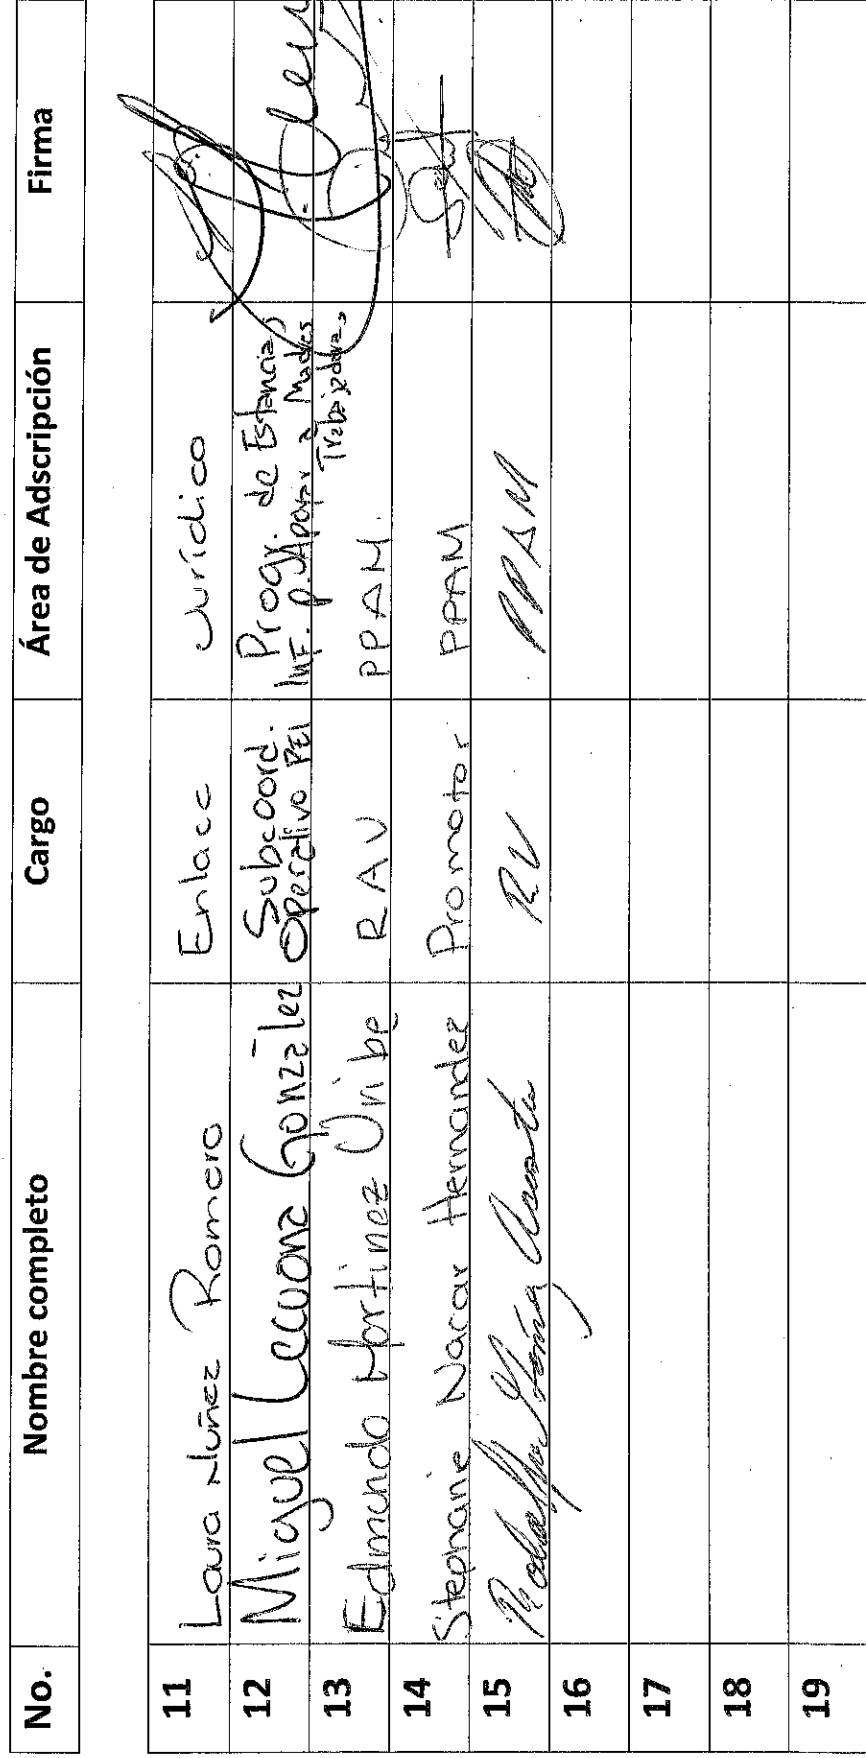 No. Nombre completo Cargo Área de Adscripción Firma
11 Laura Núñez Romero Enlace Jurídico
12 Miguel Lecuona González Subcoord. Operativo PEI Progr. de Estancias Inf. p. Apoyar a Madres Trabajadoras
13 Edmundo Martinez Uribe RAV PPAM.
14 Stephanie Nacar Hernandez Promotor PPAM
15 Rodolfo Acosta RV PPAM
16
17
18
19